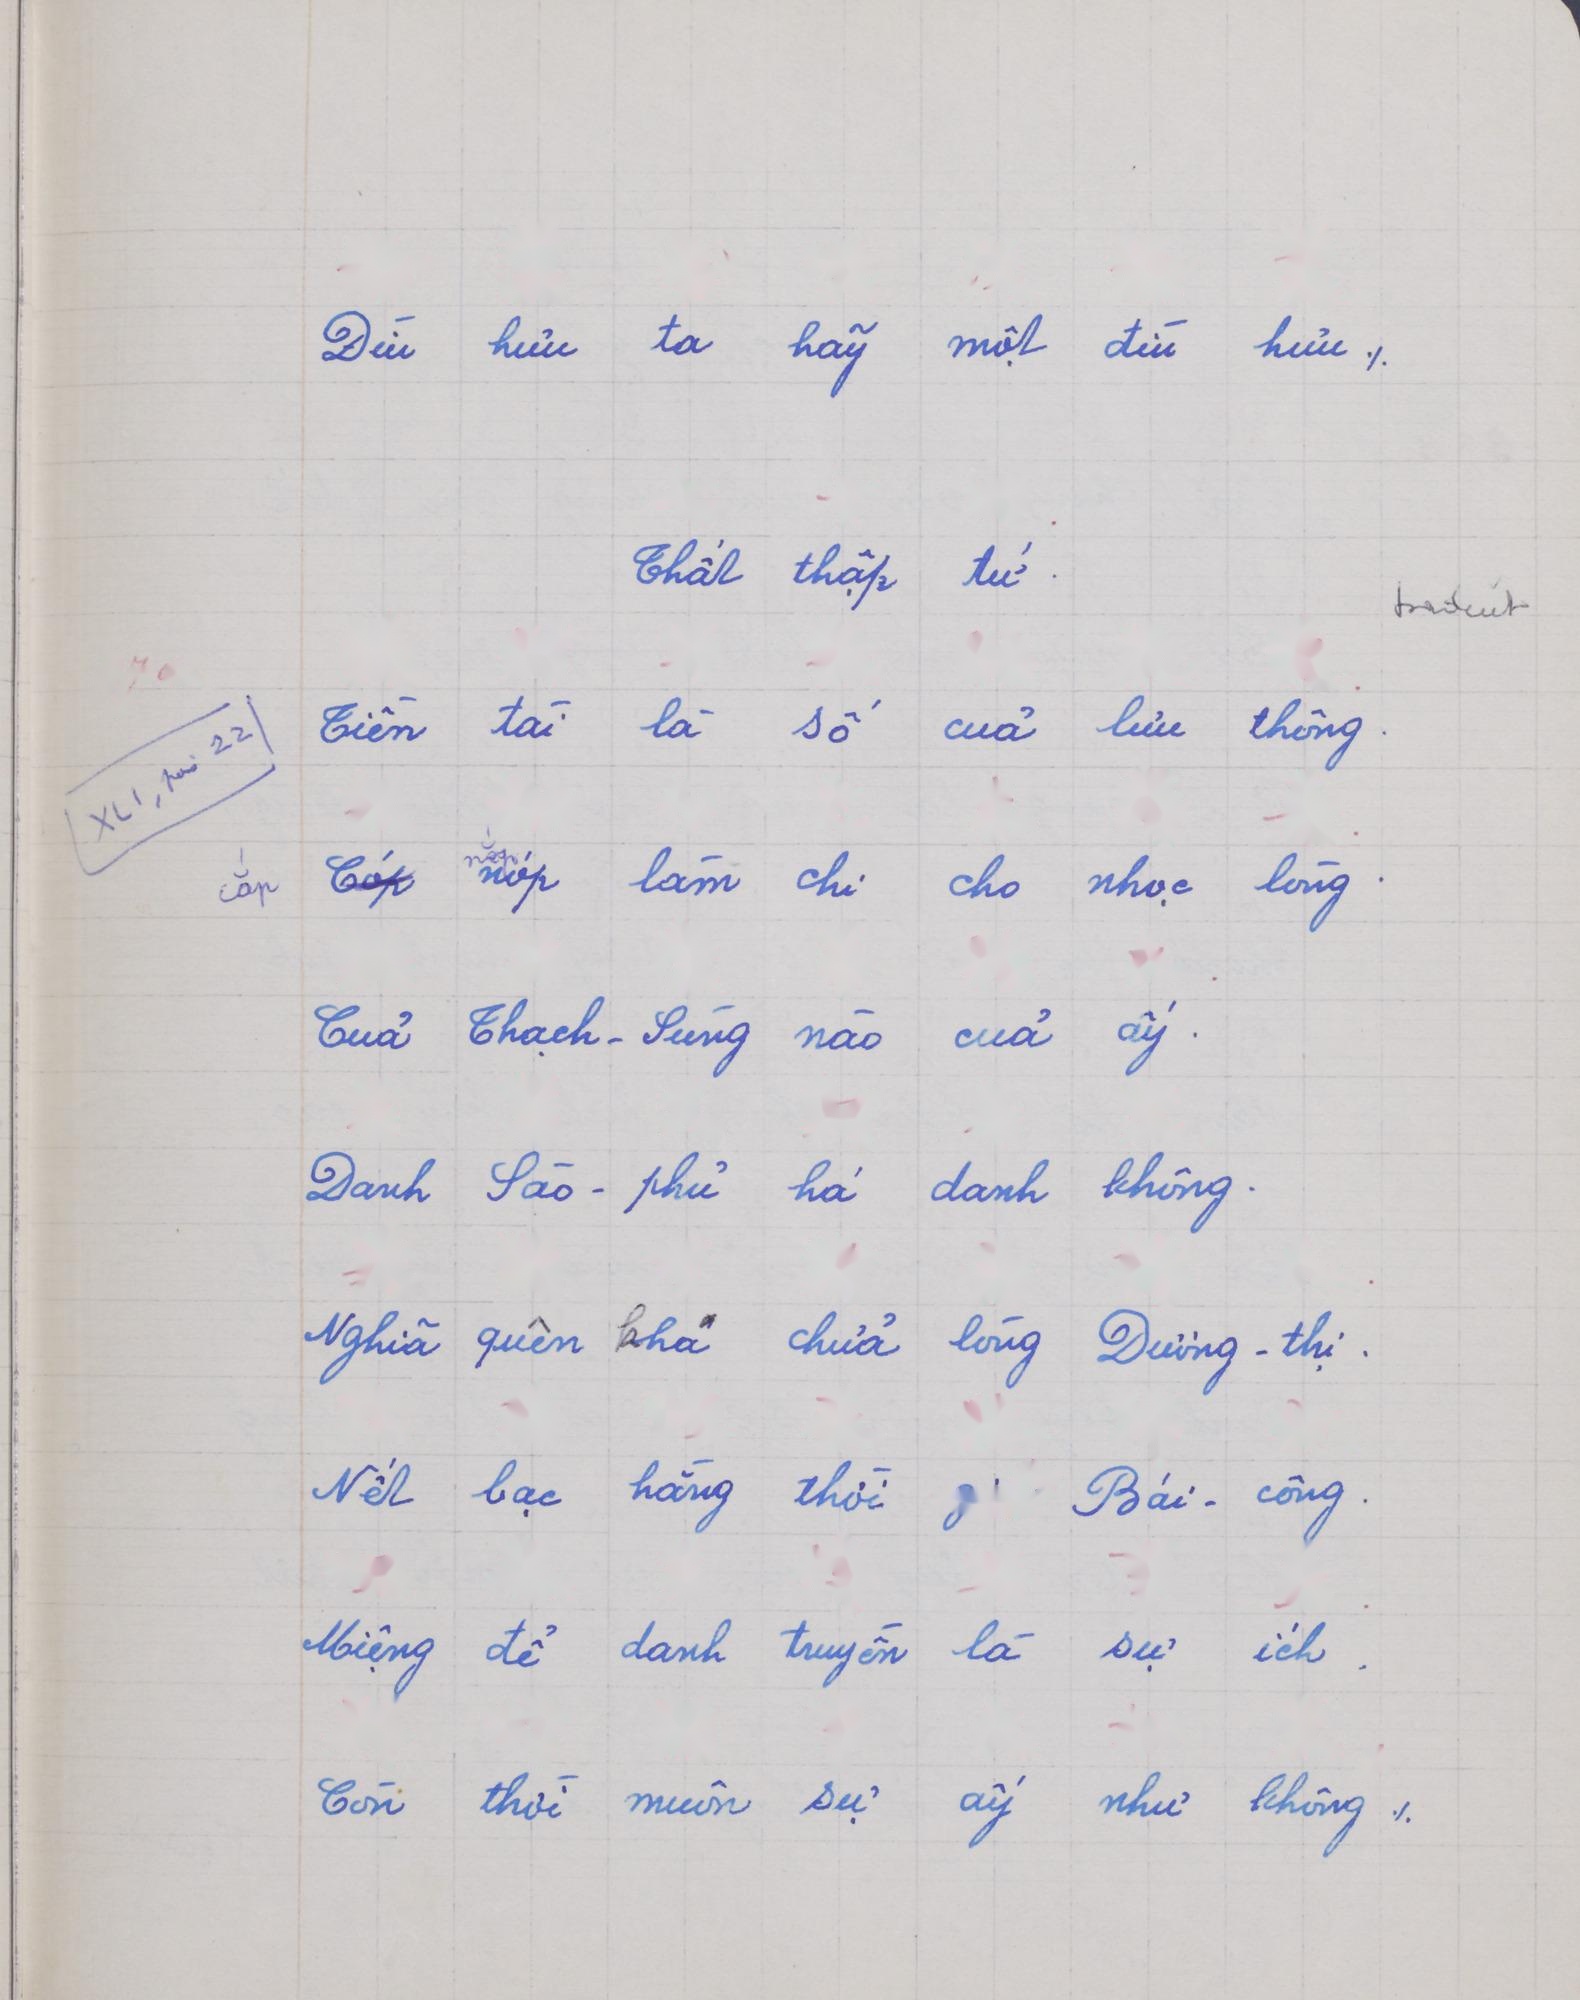 Dìu hưu ta hãy một dìu hưu ./.
Thất thập tứ.
traduit
70
Tiền tài là số của lưu thông.
XLI, bài 22
cắp Cóp nắp nóp làm chi cho nhọc lòng.
Của Thạch-Sùng nào của ấy.
Danh Sào-phủ há danh không.
Nghĩa quên khả chửa lòng Dương-thị.
Nết bạc hằng thời Bái-công.
Miệng để danh truyền là sự ích.
Còn thời muôn sự ấy như không ./.